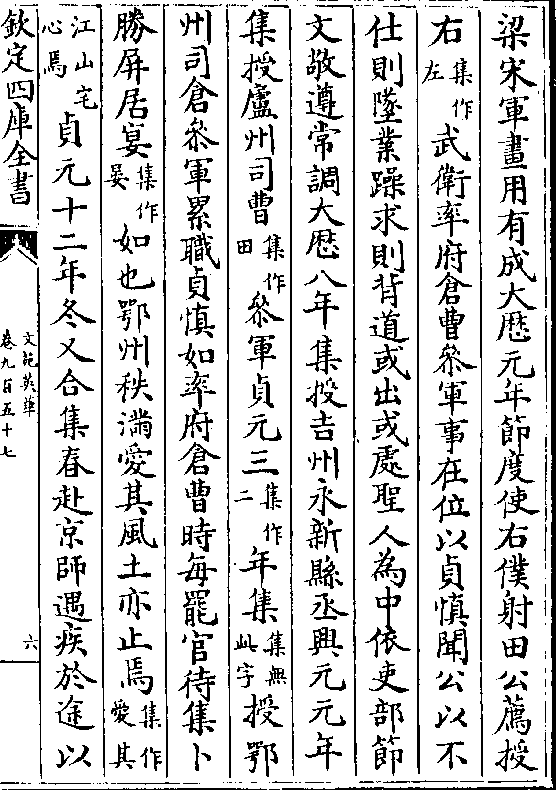 梁宋軍畫用有成大厯元年節度使右僕射田公薦授
右集作左武衛率府倉曹叅軍事在位以貞慎聞公以不
仕則墜業躁求則背道或出或處聖人為中依吏部節
文敬遵常調大厯八年集授吉州永新縣丞興元元年
集授廬州司曹集作田叅軍貞元三集作二年集集無此字授鄂
州司倉叅軍累職貞慎如率府倉曹時每罷官待集卜
勝屏居宴集作晏如也鄂州秩滿愛其風土亦止焉集作愛其
江山宅心焉貞元十二年冬又合集春赴京師遇疾於途以
欽定四庫全書
文苑英華
卷九百五十七
六